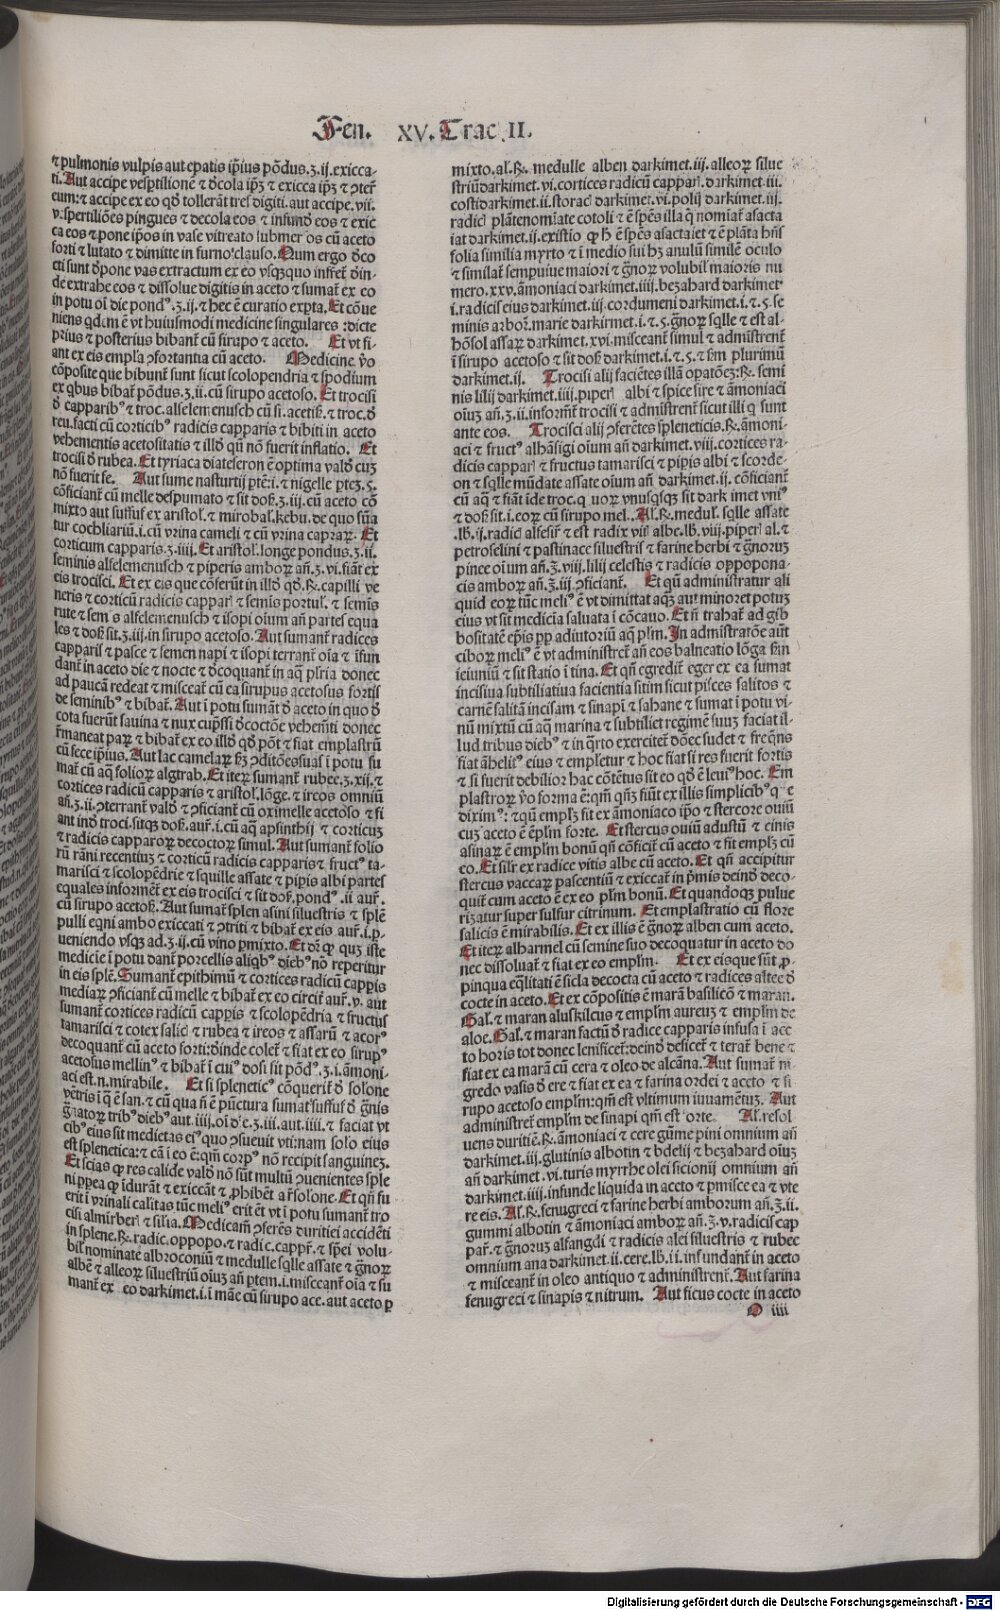 Fen. XV. Trac II.
⁊ pulmonis vulpis aut epatis ip̄ius põdus.ʒ.ij.exicca-
ti. Aut accipe vesptilionē ⁊ ꝺcola ip̄ʒ ⁊ exicca ip̄ʒ ⁊ ↄter̄
cum: ⁊ accipe ex eo qꝺ tollerāt tres digiti. aut accipe .vii.
v:spertiliões pingues ⁊ decola eos ⁊ infunꝺ eos ⁊ exic
ca eos ⁊ pone ip̄os in vase vitreato submer os cū aceto
forti ⁊ lutato ⁊ dimitte in furno clauso. Cum ergo ꝺco
cti sunt ꝺpone vas extractum ex eo vsqꝫquo infret̄ ꝺin-
de extrahe eos ⁊ dissolue digitis in aceto ⁊ sumat̄ ex eo
in potu oī die pond⁹.ʒ.ij. ⁊ hec ē curatio expta. Et cōue
niens qd:m ē vt huiusmodi medicine singulares :dicte
prius ⁊ posterius bibant̄ cū sirupo ⁊ aceto. Et vt fi-
ant ex eis empla ↄfortantia cū aceto. Medicine v̄o
cōposite que bibunt̄ sunt sicut scolopendria ⁊ spodium
ex qbus bibat̄ põdus.ʒ.ii. cū sirupo acetoso. Et trocisi
ꝺ capparib⁹ ⁊ troc. alfelemenusch cū si. acetis̄. ⁊ troc. ꝺ
reu. facti cū corticib⁹ radicis capparis ⁊ bibiti in aceto
vehementis acetositatis ⁊ illꝺ qn̄ nō fuerit inflatio. Et
trocisi ꝺ rubea. Et tyriaca diateseron ē optima valꝺ cuʒ
nō fuerit fe. Aut sume nasturtij pte: i. ⁊ nigelle pteʒ.5.
cōficiant̄ cū melle despumato ⁊ sit dos̄.ʒ.iii. cū aceto cō
mixto aut suffuf ex aristol̄. ⁊ mirobal̄. kebu. de quo sūa
tur cochliariū .i. cū vrina cameli ⁊ cū vrina capraꝝ. Et
corticum capparis .ʒ.iiii. Et aristol̄. longe pondus .ʒ.ii.
seminis alfelemenusch ⁊ piperis amboꝝ añ.ʒ.vi. fiāt ex
eis trocisci. Et ex eis que cōferūt in illꝺ qꝺ.℞. capilli ve
neris ⁊ corticū radicis cappar̄ ⁊ semis portul̄. ⁊ semīs
rute ⁊ sem s alfelemenusch ⁊ isopi oium añ partes equa
les ⁊ dos̄ sit.ʒ.iij. in sirupo acetoso. Aut sumant̄ radices
capparis ⁊ pasce ⁊ semen napi ⁊ isopi terrant̄ oīa ⁊ īfun
dant̄ in aceto die ⁊ nocte ⁊ ꝺcoquant̄ in aq̄ plŕia donec
ad paucā redeat ⁊ misceat̄ cū ea sirupus acetosus fortis
de seminib⁹ ⁊ bibat̄. Aut ī potu sumāt̄ ꝺ aceto in quo ꝺ
cota fuerūt sauina ⁊ nux cupssi ꝺcoctōe vehemēti donec
f̄maneat paꝝ ⁊ bibat̄ ex eo illꝺ qꝺ pōt ⁊ fiat emplastrū
cū fece ip̄ius. Aut lac camelaꝝ sʒ ↄditōes suas ī potu su
mat̄ cū aq̄ folioꝝ algtrab. Et iteꝝ sumant̄ rubee.ʒ.xij. ⁊
cortices radicū capparis ⁊ aristol̄. lōge. ⁊ ireos omniū
añ.ʒ.ii. ↄterrant̄ valꝺ ⁊ ↄficiant̄ cū oximelle acetoso ⁊ fi
ant inꝺ troci. sitqʒ dos̄. aur̄. i. cū aq̄ apsinthij ⁊ corticuʒ
⁊ radicis capparoꝝ decoctoꝝ simul. Aut sumant̄ folio
rū rāni recentiuʒ ⁊ corticū radicis capparis ⁊ fruct⁹ ta-
marisci ⁊ scolopēdrie ⁊ squille assate ⁊ pipis albi partes
equales informēt̄ ex eis trocisci ⁊ sit dos̄. pond⁹ .ii aur̄.
cū sirupo acetos̄. Aut sumat̄ splen asini siluestris ⁊ splē
pulli eqni ambo exiccati ⁊ ↄtriti ⁊ bibat̄ ex eis aur̄.i.ꝑ-
ueniendo vsqʒ ad.ʒ.ij. cū vino pmixto. Et dr̄ ꝙ quʒ iste
medicie ī potu dant̄ porcellis aliqb⁹ dieb⁹ nō reperitur
in eis splē. Sumant̄ epithimū ⁊ cortices radicū cappis
mediaꝝ ↄficiant̄ cū melle ⁊ bibat̄ ex eo circit̄ aur̄. v. aut
sumant̄ cortices radicū cappis ⁊ scolopēdria ⁊ fructus
tamarisci ⁊ cotex salici ⁊ rubea ⁊ ireos ⁊ assarū ⁊ acor⁹
decoquant̄ cū aceto forti: ꝺinde colet̄ ⁊ fiat ex eo sirup⁹
acetosus mellin⁹ ⁊ bibat̄ ī cui⁹ dosi sit põd⁹.ʒ.i. āmoni-
aci est. n. mirabile. Et si splenetic⁹ cōquerit̄ ꝺ solone
vētris ī q̄ ē san. ⁊ cū qua n̄ ē pūctura sumat suffuf ꝺ ḡnis
ḡnatoꝝ trib⁹ dieb⁹ aut .iiij. oī d'e.ʒ.iii. aut .iiii. ⁊ faciat vt
cib⁹ eius sit medietas ei⁹ quo ↄsueuit vti: nam solo eius
est splenetica: ⁊ cā ī eo ē: qm̄ corp⁹ nō recipit sanguineʒ.
Et scias ꝙ res calide valꝺ nō sūt multū ↄuenientes sple
ni ppea ꝙ īdurāt ⁊ exiccāt ⁊ ꝓhibēt ar̄solone. Et qn̄ fu
erit ī vrinali calitas tūc meli⁹ erit ēt vt ī potu sumant̄ tro
cisi almirberī ⁊ silia. Medicam̄ ↄferēs duritiei accidēti
in splene.℞. radic. oppopo. ⁊ radic. cappr̄. ⁊ sp̄ei volu-
bil̄ nominate albroconiū ⁊ medulle sqlle assate ⁊ ḡnoꝝ
albē ⁊ alleoꝝ siluestriū oiuʒ añ ptem.i. misceant̄ oīa ⁊ su
mant̄ ex eo darkimet.i. ī māe cū sirupo ace. aut aceto ꝑ
mixto. al̄.℞. medulle alben darkimet.iij. alleoꝝ silue
striū darkimet.vi. cortices radicū cappar̄. darkimet.iii.
costi darkimet.ii. storac̄ darkimet.vi. polij darkimet.iij.
radic̄ plāte nomīate cotoli ⁊ ē sp̄es illa q̄ nomīat̄ asacta
iat darkimet.ij. existio ꝙ h̄ ē sp̄es asactaiet ⁊ ē plāta hn̄s
folia similia myrto ⁊ ī medio sui hʒ anulū similē oculo
⁊ similat̄ sempuiue maiori ⁊ ḡnoꝝ volubil̄ maioris nu
mero.xxv. āmoniaci darkimet.iiij. bezahard darkimet
i. radicis eius darkimet.iij. cordumeni darkimet.i. ⁊.5. se
minis arbor̄. marie darkirmet.i. ⁊.5. ḡnoꝝ sqlle ⁊ est al-
hōsol assaꝝ darkimet.xvi. misceant̄ simul ⁊ admistrent̄
ī sirupo acetoso ⁊ sit dos̄ darkimet.i. ⁊.5. ⁊ s̄m plurimū
darkimet.ij. Trocisi alij faciētes illā opatōeʒ:℞. semi
nis lilij darkimet.iiij. piper̄ albi ⁊ spice sire ⁊ āmoniaci
oīuʒ añ.ʒ.ii. informēt̄ trocisi ⁊ admistrent̄ sicut illi q̄ sunt
ante eos. Trocisci alij ↄferētes spleneticis.℞. āmoni-
aci ⁊ fruct⁹ alhāsigi oium añ darkimet.viii. cortices ra-
dicis cappar̄ ⁊ fructus tamarisci ⁊ pipis albi ⁊ scorde-
on ⁊ sqlle mūdate assate oium añ darkimet.ij. cōficiant̄
cū aq̄ ⁊ fiāt īde troc. q uoꝝ vnusqsqʒ sit dark imet vni⁹
⁊ dos̄ sit.i. eoꝝ cū sirupo mel. Al̄.℞. medul̄. sqlle assate
.lb.ij. radic̄ alfesir̄ ⁊ est radix vis̄ albe.lb.viii. piper̄ al. ⁊
petroselini ⁊ pastinace siluestris ⁊ farine herbi ⁊ ḡnoruʒ
pinee oium añ.ʒ.viii. lilij celestis ⁊ radicis oppopona-
cis amboꝝ añ.ʒ.iij. ↄficiant̄. Et qn̄ administratur ali
quid eoꝝ tūc meli⁹ ē vt dimittat aqʒ aut minoret potuʒ
eius vt sit medicīa saluata ī cōcauo. Et n̄ trahat̄ ad gib
bositatē ep̄is pp adiutoriū aq̄ plm̄. In admistratōe aūt
ciboꝝ meli⁹ ē vt administrēt̄ añ eos balneatio lōga s̄m
ieiuniū ⁊ sit statio ī tina. Et qn̄ egredit̄ eger ex ea sumat
incisiua subtiliatiua facientia sitim sicut pisces salitos ⁊
carnē salitā incisam ⁊ sinapi ⁊ sahane ⁊ sumat ī potu vi-
nū mixtū cū aq̄ marina ⁊ subtiliet regimē suuʒ faciat il-
lud tribus dieb⁹ ⁊ in q̄rto exercitet̄ dōec sudet ⁊ freq̄ns
fiat āhelit⁹ eius ⁊ empletur ⁊ hoc fiat si res fuerit fortis
⁊ si fuerit debilior hac cōtētus sit eo qꝺ ē leui⁹ hoc. Em
plastroꝝ v̄o forma ē: qm̄ qn̄qʒ fiūt ex illis simplicib⁹ q e
dixim⁹: ⁊ qn̄ emplʒ sit ex āmoniaco ip̄o ⁊ stercore ouiū
cuʒ aceto ē ēplm̄ forte. Et stercus ouiū adustū ⁊ cinis
asinaꝝ ē emplm̄ bonū qn̄ cōficit̄ cū aceto ⁊ fit emplʒ cū
eo. Et sil̄r ex radice vitis albe cū aceto. Et qn̄ accipitur
stercus vaccaꝝ pascentiū ⁊ exiccat̄ in p̄mis deinꝺ deco-
quit̄ cum aceto ē ex eo plm̄ bonū. Et quandoqʒ pulue
rizatur super sulfur citrinum. Et emplastratio cū flore
salicis ē mirabilis. Et ex illis ē ḡnoꝝ alben cum aceto.
Et iteꝝ alharmel cū semine suo decoquatur in aceto do
nec dissoluat̄ ⁊ fiat ex eo emplm̄. Et ex eisque sūt ꝓ-
pinqua eq̄litati ē sicla decocta cū aceto ⁊ radices altee ꝺ
cocte in aceto. Et ex cōpositis ē marā basilicō ⁊ maran.
Gal̄. ⁊ maran aluskilcus ⁊ emplm̄ aureuʒ ⁊ emplm̄ de
aloe. Gal̄. ⁊ maran factū ꝺ radice capparis infusa ī ace
to horis tot donec lenificet̄: deinꝺ desicet̄ ⁊ terat̄ bene ⁊
fiat ex ea marā cū cera ⁊ oleo de alcāna. Aut sumat̄ ni
gredo vasis ꝺ ere ⁊ fiat ex ea ⁊ farina ordei ⁊ aceto ⁊ si
rupo acetoso emplm̄: qm̄ est vltimum iuuamētuʒ. Aut
administret̄ emplm̄ de sinapi qm̄ est forte. Al̄. resol
uens duritiē.℞. āmoniaci ⁊ cere gūme pini omnium añ
darkimet.iii. glutinis albotin ⁊ bdelij ⁊ bezahard oiuʒ
añ darkimet.vi. turis myrrhe olei sicionij omnium añ
darkimet.iiij. infunde liquida in aceto ⁊ ꝑmisce ea ⁊ vte
re eis. Al̄.℞. fenugreci ⁊ farine herbi amborum añ.ʒ.ii.
gummi albotin ⁊ āmoniaci amboꝝ añ.ʒ.v. radicis cap
par̄. ⁊ ḡnoruʒ alfangdi ⁊ radicis alei siluestris ⁊ rubee
omnium ana darkimet.ii. cere.lb.ii. infundant̄ in aceto
⁊ misceant̄ in oleo antiquo ⁊ administrent̄. Aut farina
fenugreci ⁊ sinapis ⁊ nitrum. Aut ficus cocte in aceto
O iiii
Digitalisierung gefördert durch die Deutsche Forschungsgemeinschaft - DFG